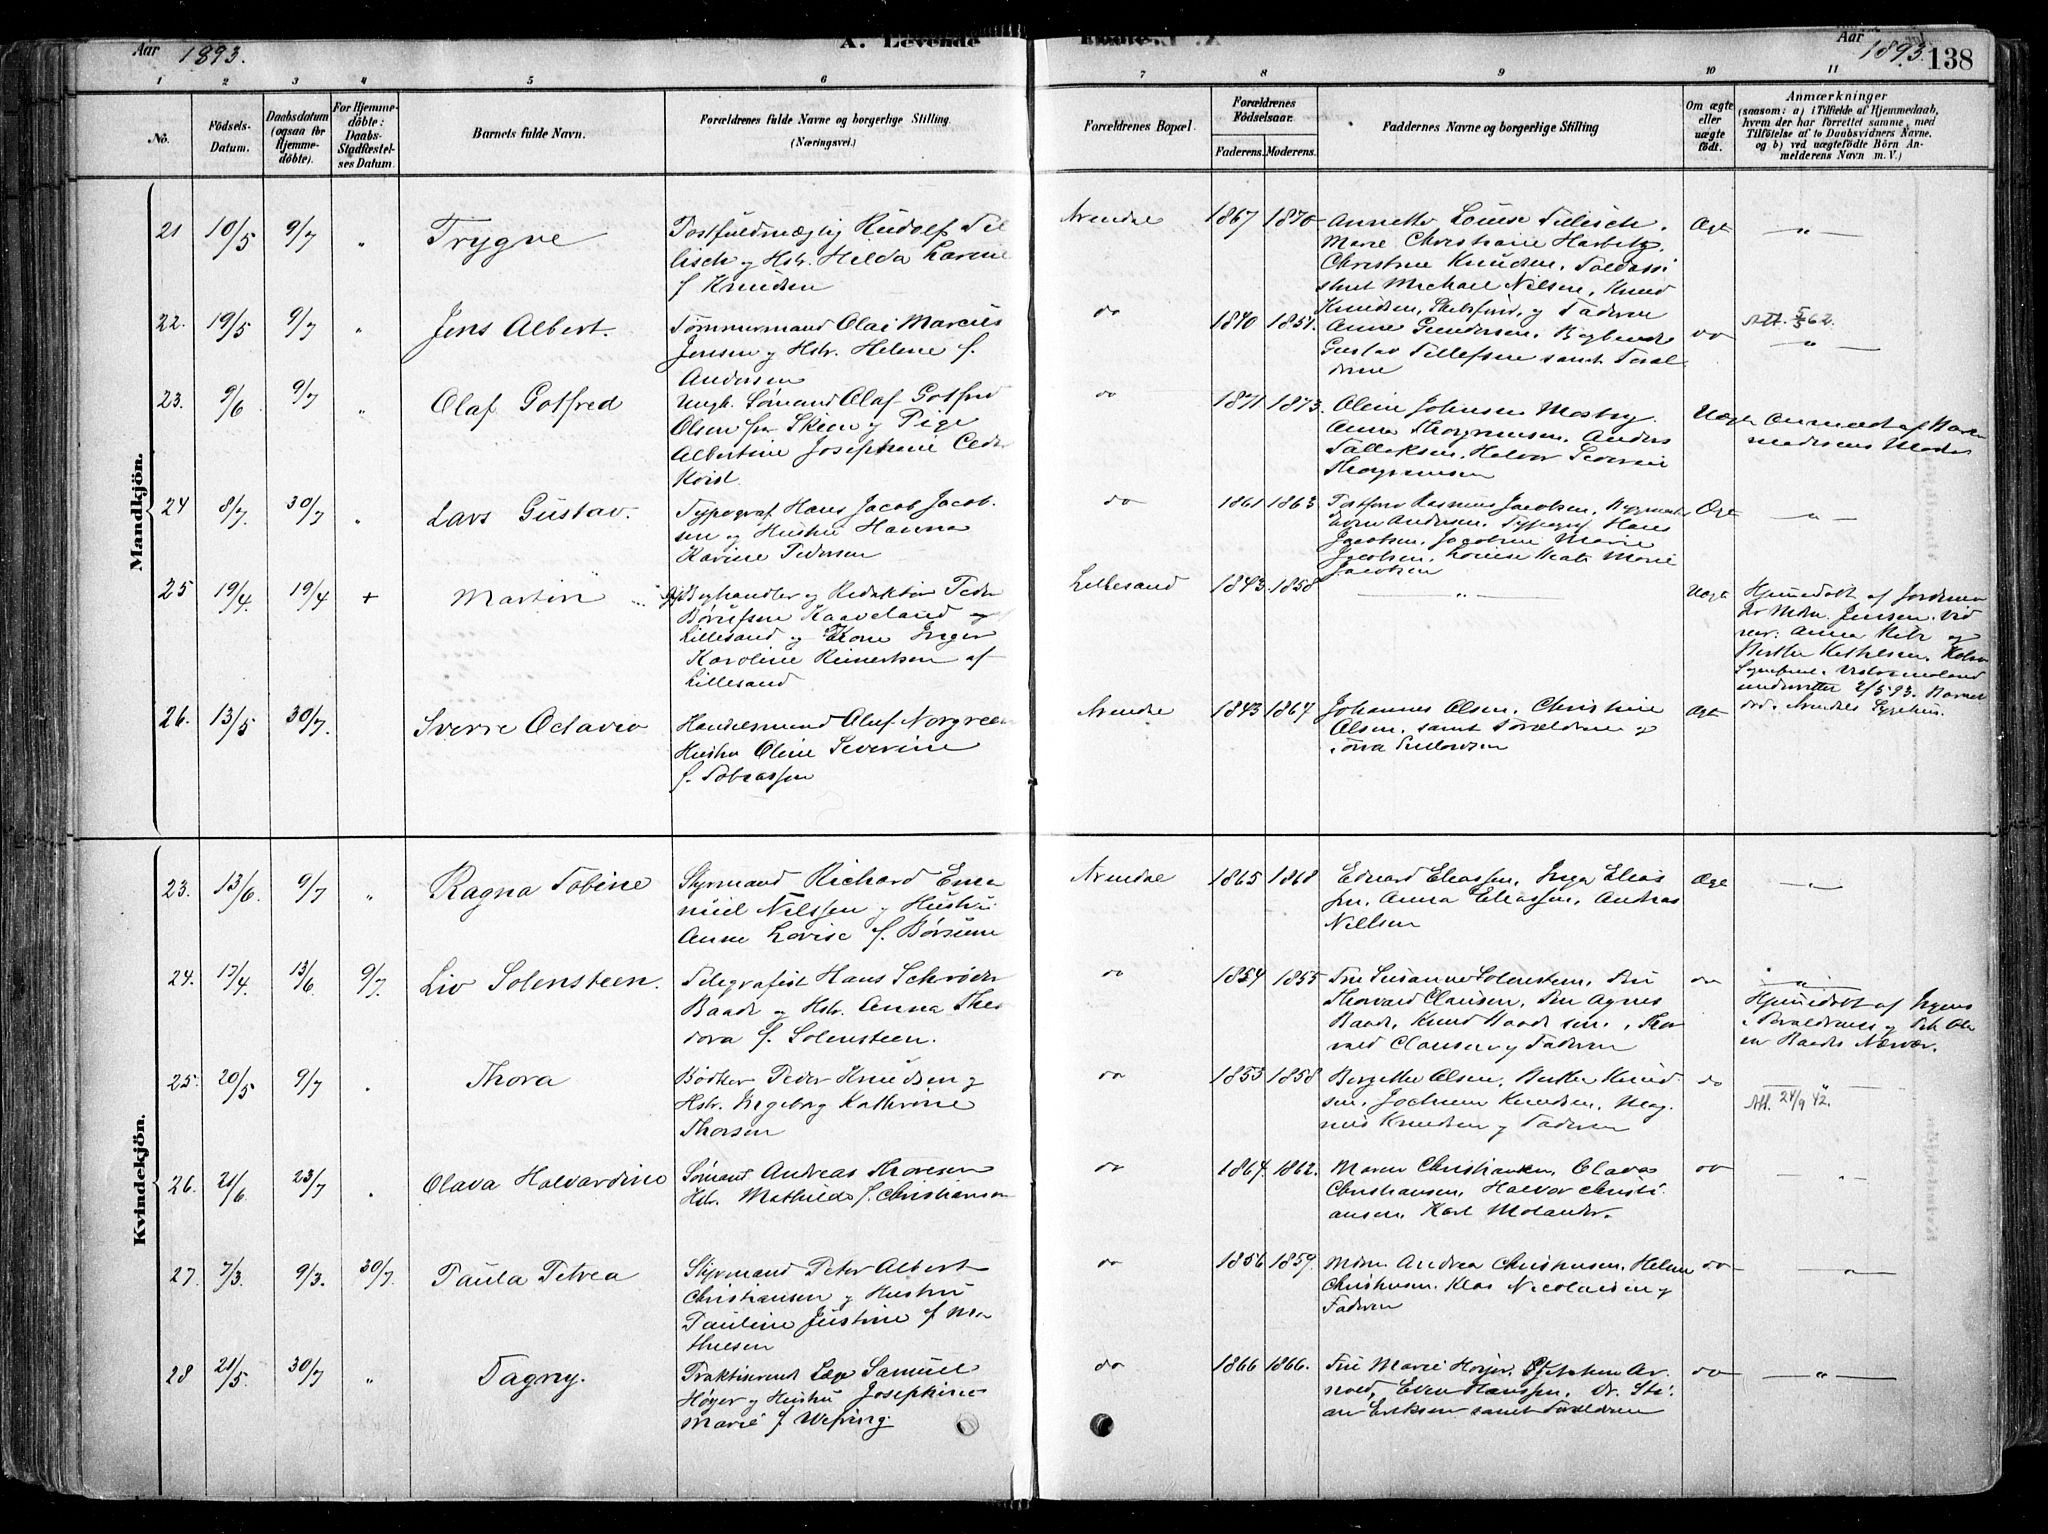 Aar 1893.
A. Levende Fødte.
Aar 1893. 138
1 2 3 4 5 6 7 8 9 10 11
No.
Födsels-Datum.
Daabsdatum (ogsaa for Hjemmedöbte).
For Hjemmedöbte: Daabs-Stadfæstelses Datum.
Barnets fulde Navn.
Forældrenes fulde Navne og borgerlige Stilling.
(Næringsvei.)
Forældrenes Bopæl.
Forældrenes Födselsaar.
Faderens. Moderens.
Faddernes Navne og borgerlige Stilling
Om ægte eller uægte födt.
Anmærkninger
(saasom: a) i Tilfælde af Hjemmedaab,
hvem der har forrettet samme, med
Tilföielse af to Daabsvidners Navne.
og b) ved uægtefödte Börn Anmelderens Navn m. V.)
Mandkjön.
21 10/5 9/7 " Trygve
Postfuldmægtig Rudolf Tillisch og Hstr. Hilda Larine
f. Knudsen
Arendal 1867 1870
Annette Louise Tillisch,
Marie Christiane Harbitz,
Christine Knudsen, Toldassistent Michael Nilsen, Knud
Knudsen, og Faderen
Ægt "
22. 19/5 9/7 " Jens Albert.
Tømmermand Olai Marcus
Jensen og Hstr. Helene f.
Andersen
do 1840 1851.
Anne Gundersen,
Gustav Tellefsen samt Forældrene
do Att. 5/5 62. "
23. 9/6 9/7 " Olaf Gotfred
Ungk. Sømand Olaf Gotfred
Olsen fra Skien og Pige
Albertine Josephine
do 1871 1873.
Oline Johnsen Mosby,
Anna Thorgrimsen, Anders
Falleksen, Halvor Severin
Thorgrimsen
Uægt Anmeldt af
Moder
24 8/7. 30/7 " Lars Gustav.
Typograf Hans Jacob Jacobsen og Hustru Hanna
Karine Pedersen
do 1861 1863
Rasmus Jacobsen,
Andersen, Typograf Hans
Jacobsen, Jacobine Marie
Jacobsen, Louise Marie
Jacobsen
Ægt "
25 19/4. 19/4 + Martin
Boghandler og Redaktør Peder
Børufsen Kaaveland
Lillesand og Kone Inger
Karoline Reinertsen af
Lillesand
Lillesand 1843. 1858 "
Uægt Hjemmedøbt af Jordemoder Mdm. Jensen. Vidner: Anna og
Berthe Kethelsen,
2/5 93. Barnet
død i Arendals Sygehus.
26. 13/5 30/7. Sverre Octavio
Handelsmand Oluf Norgreen
Hustru Oline Severine
f. Tobiassen
Arendal 1843 1864
Johannes Olsen, Christine
Olsen, samt Forældrene og
Ægt
Kvindekjön.
23. 13/6. 9/7 " Ragna Tobine
Styrmand Richard Emanuel Nilssen og Hustru
Anne Lovise f. Børsum
Arendal 1865 1868
Edvard Eliassen, Inga Eliassen, Anna Eliassen, Andreas
Nilssen
Ægt "
24. 17/4. 13/6 9/7. Liv Solensteen.
Telegrafist Hans Schrøder
Baade og Hstr. Anna Theodora f. Solensteen.
do 1854 1855
Fru Susanne Solensteen, Fru
Thorvald Clausen, Frk Agnes
Baade, Knud Baade sen., Thorvald Clausen og Faderen
do "
Hjemmedøbt af
i Forældrenes og Frk
Baades Nærvær.
25. 20/5 9/7 " Thora
Bødker Peder Knudsen og
Hstr. Ingeborg Kathrine
Thorsen
do 1853 1858
Bergitte Olsen, Berthe Knudsen, Jochum Knudsen, Magnus Knudsen og Faderen
do "
Att. 24/9 42.
26. 21/6. 23/7 " Olava Halvardine
Sømand Andreas Thoresen
Hstr. Mathilde f. Christiansen
do 1864. 1862.
Maren Christiansen, Olava
Christiansen, Halvor Christiansen, Karl Molander.
do "
27. 7/3. 9/3. 30/7. Paula Petrea
Styrmand Peter Albert
Christiansen og Hustru
Pauline Justine f. Mathiesen
do 1856 1859.
Mdm Andrea Christensen, Helene
Christensen, Klas Nicolaisen og
Faderen
do "
28 21/5. 30/7 " Dagny.
Praktiserende Læge Samuel
Høyer og Hustru Josephine
Marie f. Wefring.
do 1866 1866.
Fru Marie Høyer, Stephen Arnold, Even Hanssen, Dr. Stian Eriksen samt Forældrene
do "